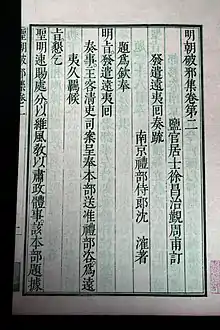 明朝破邪集卷第二
鹽官居士徐昌治覲周甫訂
發遣遠夷回奏疏
南京禮部侍郎沈 㴶著
題爲欽奉
明旨發遣遠夷回
奏事主客清吏司案呈奉本部送准禮部咨爲遠
夷久羈候
旨懇乞
聖明速賜處分以維風教以肅政體事該本部題據
聖朝破邪集卷二